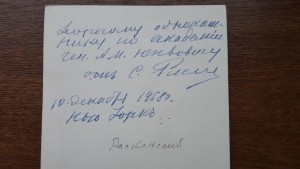 Дорогому однокаш-
нику по академии
ген. А.М.
от С.
10 декабря 1958г.
Нью Йорк.